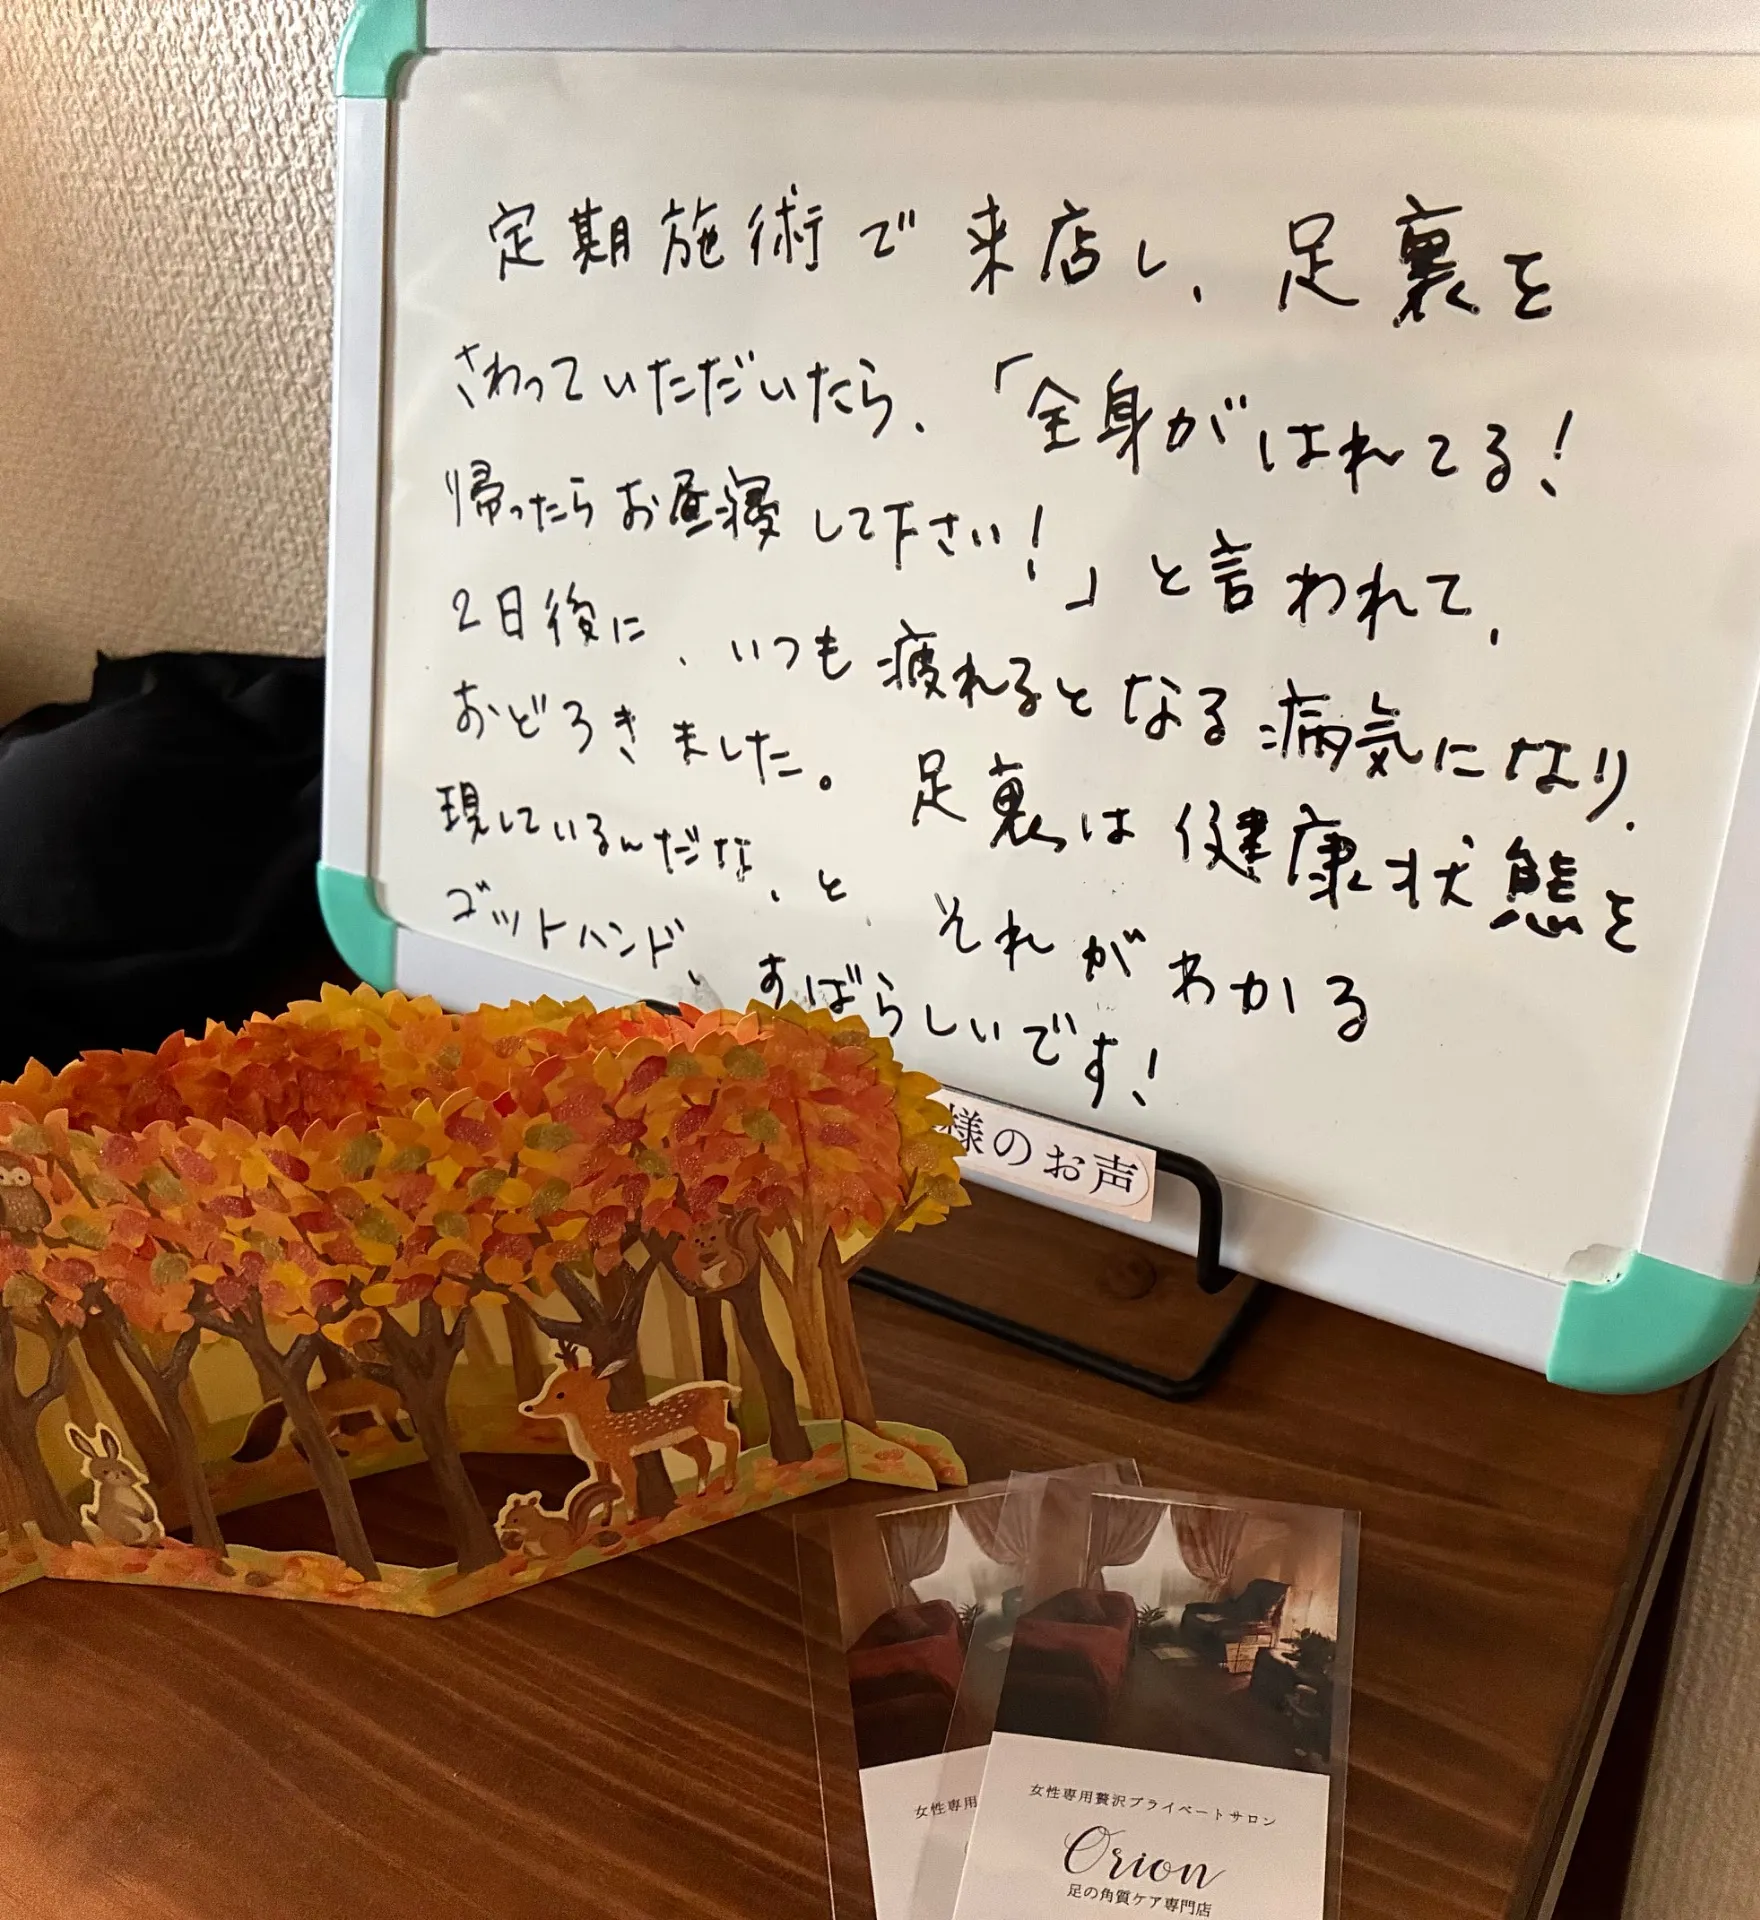 定期施術で来店し、足裏を
さわっていただいたら、「全身がはれてる!
帰ったらお昼寝して下さい!」と言われて、
2日後に、いつも疲れるとなる病気になり、
おどろきました。足裏は健康状態を
現しているんだな、と それがわかる
ゴットハンド、すばらしいです!
様のお声
女性専用
女性専用贅沢プライベートサロン
Orion
足の角質ケア専門店